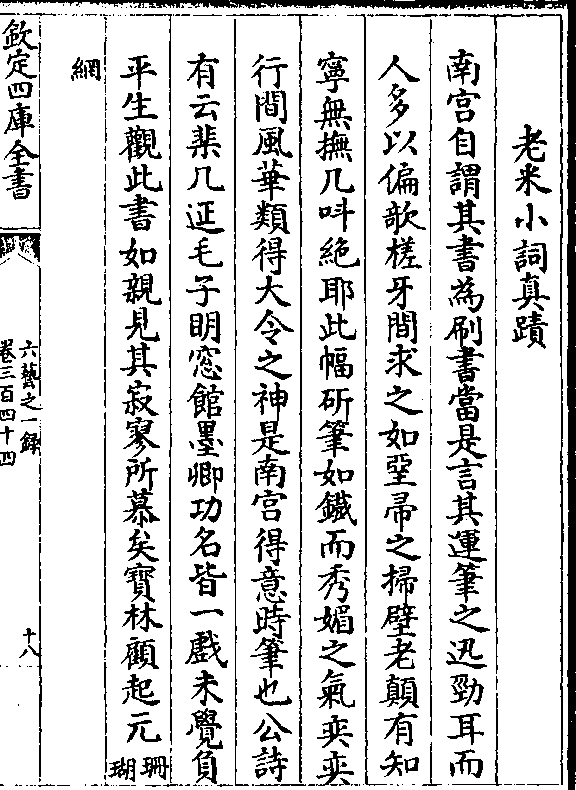 老米小詞真蹟
南宫自謂其書為刷書當是言其運筆之迅勁耳而
人多以偏欹槎牙間求之如堊帚之掃壁老顛有知
寧無撫几呌絶耶此幅斫筆如鐵而秀媚之氣奕奕
行間風華類得大令之神是南宫得意時筆也公詩
有云棐几延毛子明窓館墨卿功名皆一戲未覺負
平生觀此書如親見其寂寥所慕矣寶林顧起元珊瑚
網
欽定四庫全書
六藝之一録
卷三百四十四
十八